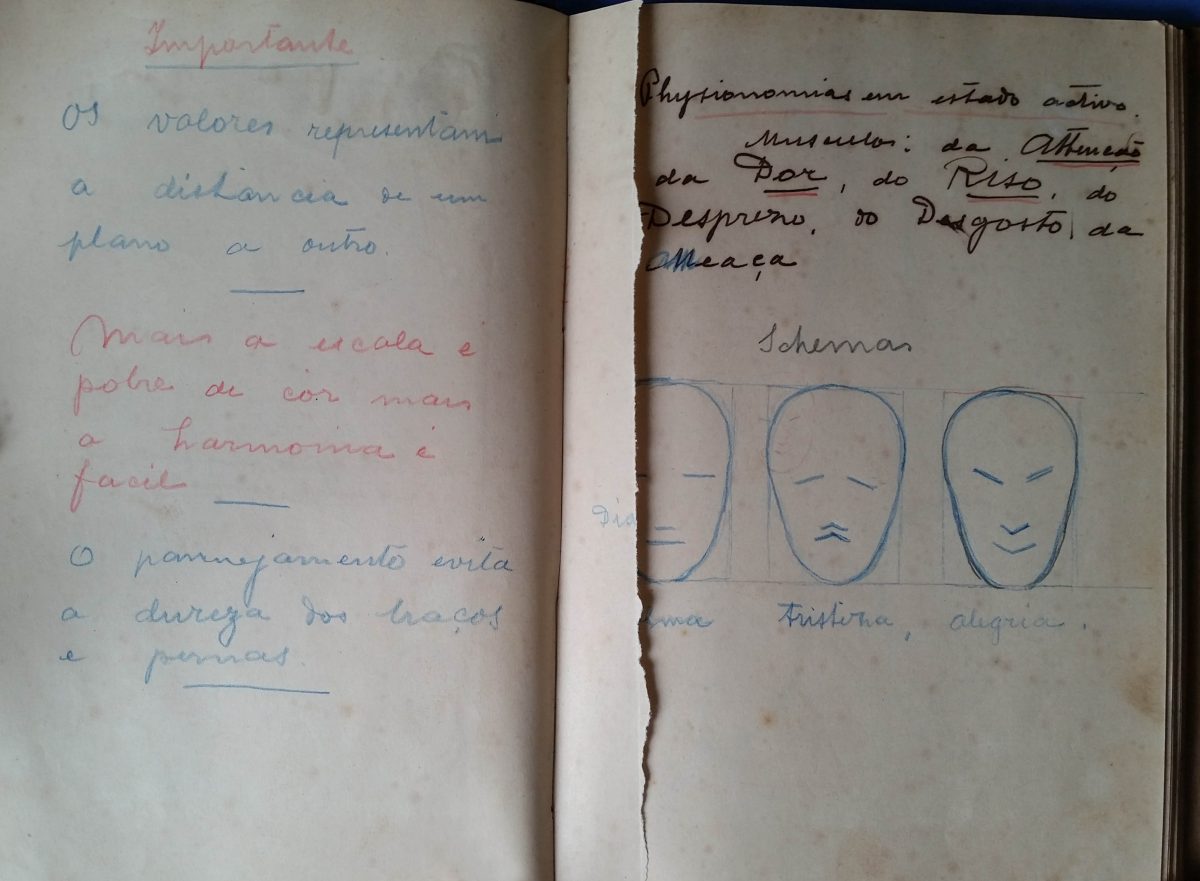 Importante
Os valores representam
a distância de um
plano a outro.
Mais a escala é
pobre de côr mais
a harmonia é
facil
O pannejamento evita
a dureza dos traços
e pernas.
Physionomias em estado activo.
Musculos: da Attenção
da Dor, do Riso, do
Desprezo, do Desgosto, da
Ameaça
Schemas
Dia
lma tristeza, alegria.